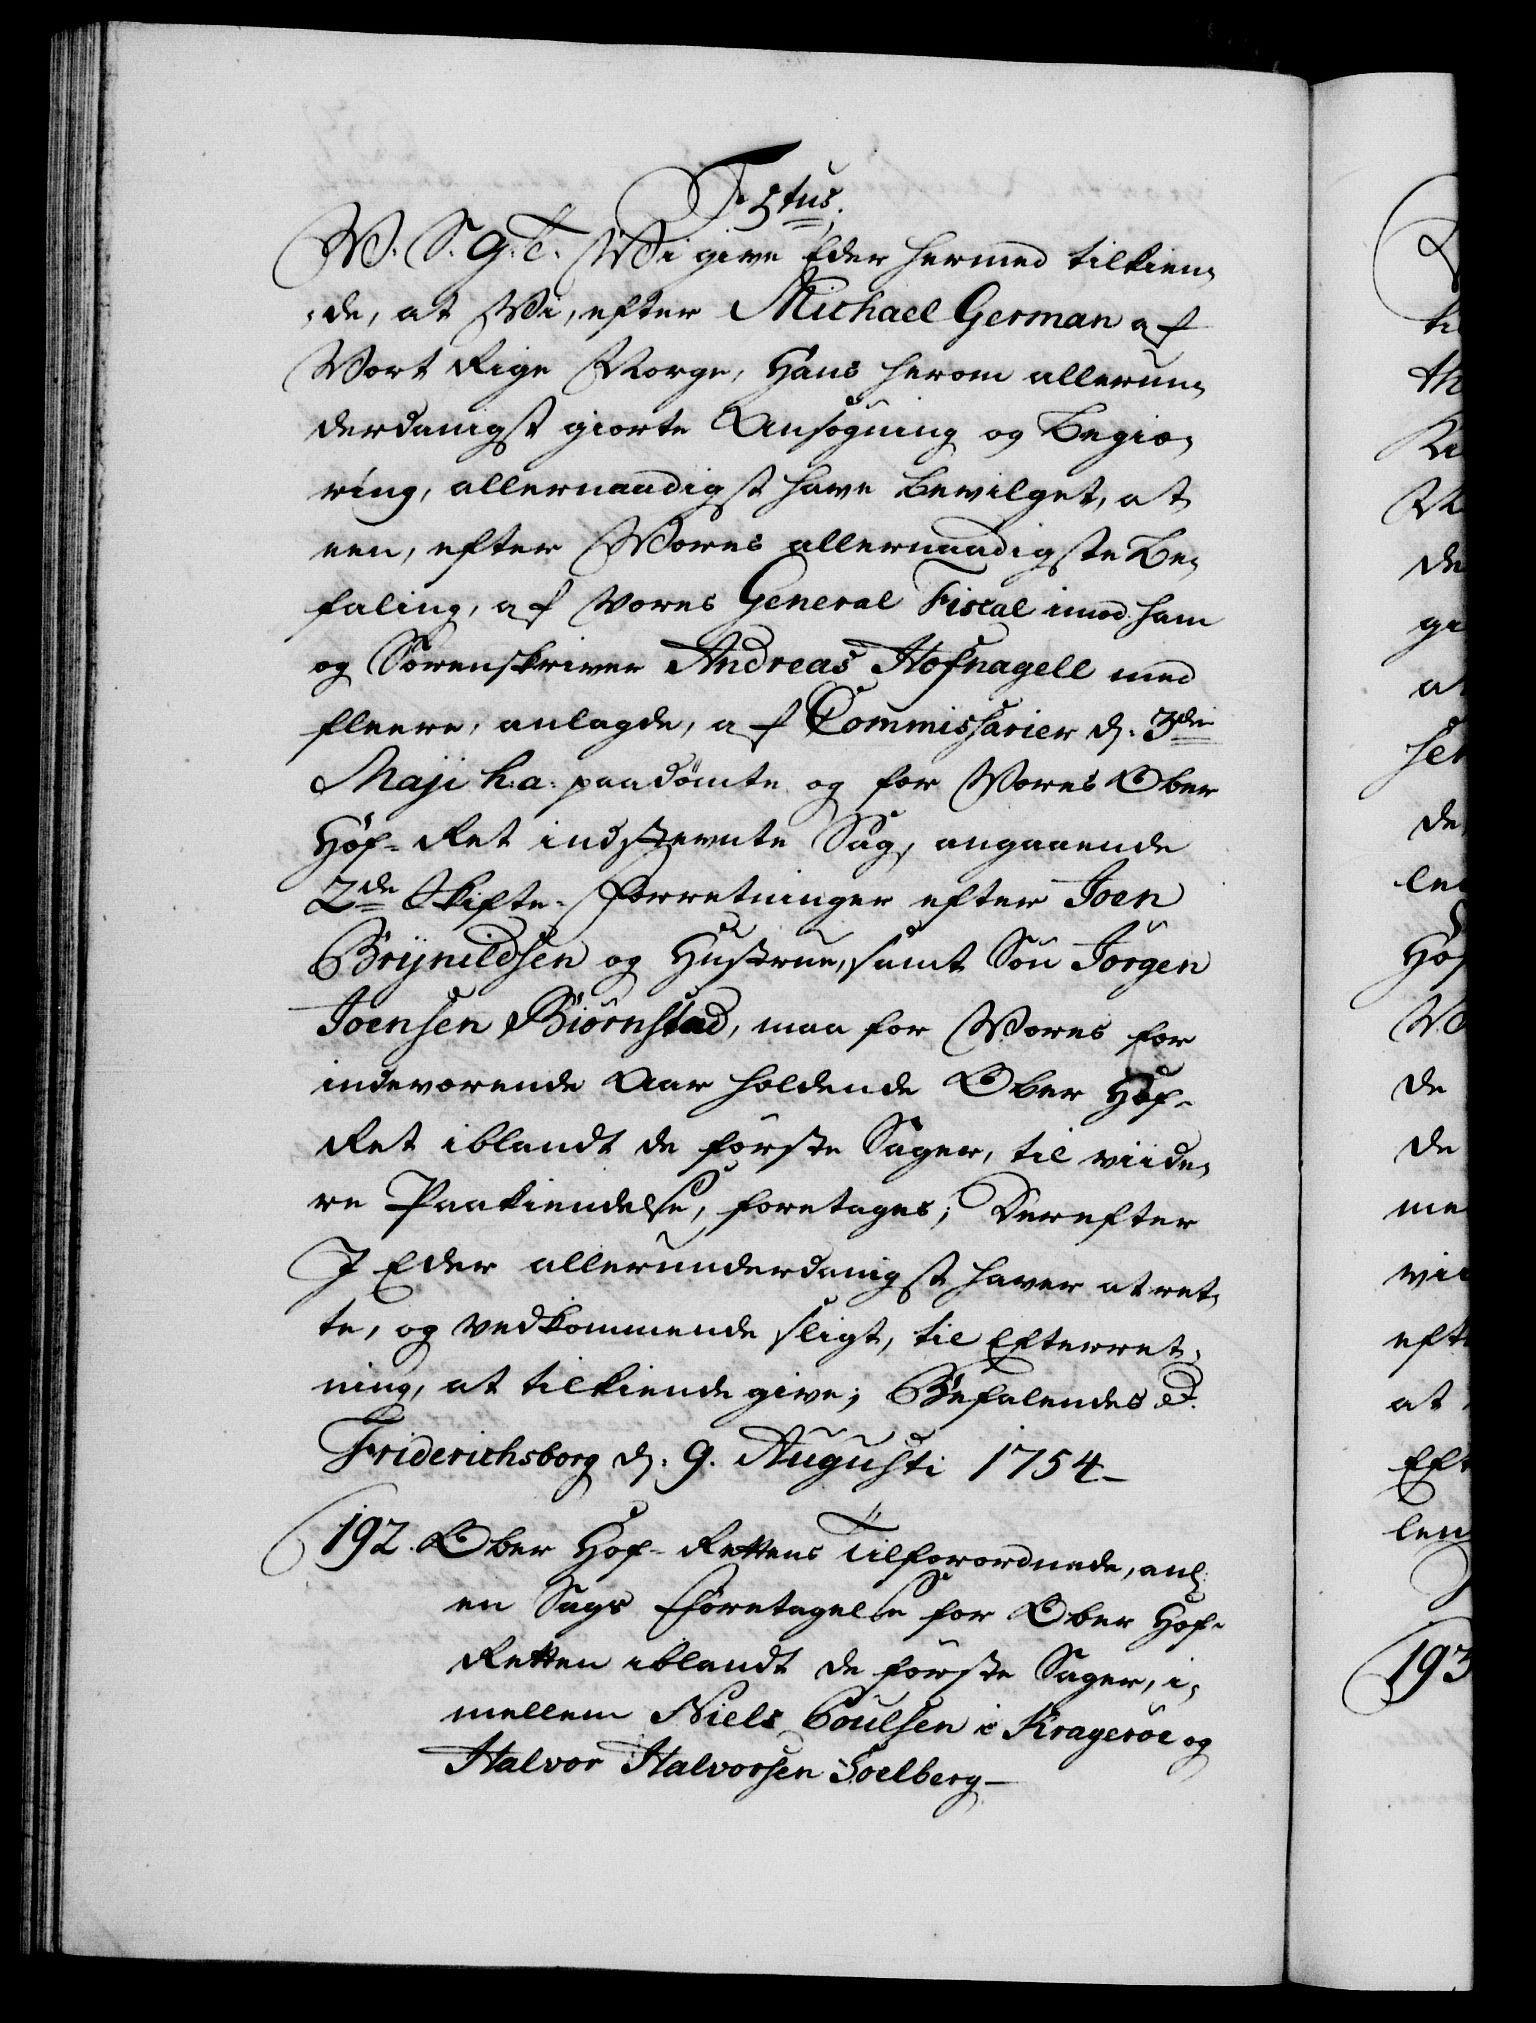 F 5tus.
W. S. G. T. Wi give Eder hermed tilkien,
,de, at Wi, efter Michael German af
Wort Rige Norge, Hans herom allerun,
derdanigst giorte Ansøgning og Begiæ,
ring, allernaadigst have bevilget, at
een, efter Wores allernaadigste Be,
faling, af Vores General Fiscal imod ham
og Sorenskriver Andreas Hofnagell med
fleere, anlagde, af Commissarier d. 3de
Maji h: a: paadömte og for Wores Ober
Hof-Ret indstevnte Sag, angaaende
2de Skifte-Forretninger efter Joen
Brÿnildsen og Hustrue, samt Sön Jörgen
Joensen Biörnstad, maa for Wores for
indeværende Aar holdende Ober Hof-
Ret iblandt de förste Sager, til viide,
re Paakiendelse, foretages; Derefter
I Eder allerunderdanigst haver at ret,
te, og vedkommende sligt, til Efterret,
ning, at tilkiende give; Befalendes p.
Friderichsborg d. 9. Augusti 1754-
192. Ober Hof-Rettens Tilforordnede, anl:
en Sags Foretagelse for Ober Hof-
Retten iblandt de förste Sager, i,
mellem Niels Poulsen i Krageröe og
Halvor Halvorsen Soelberg-